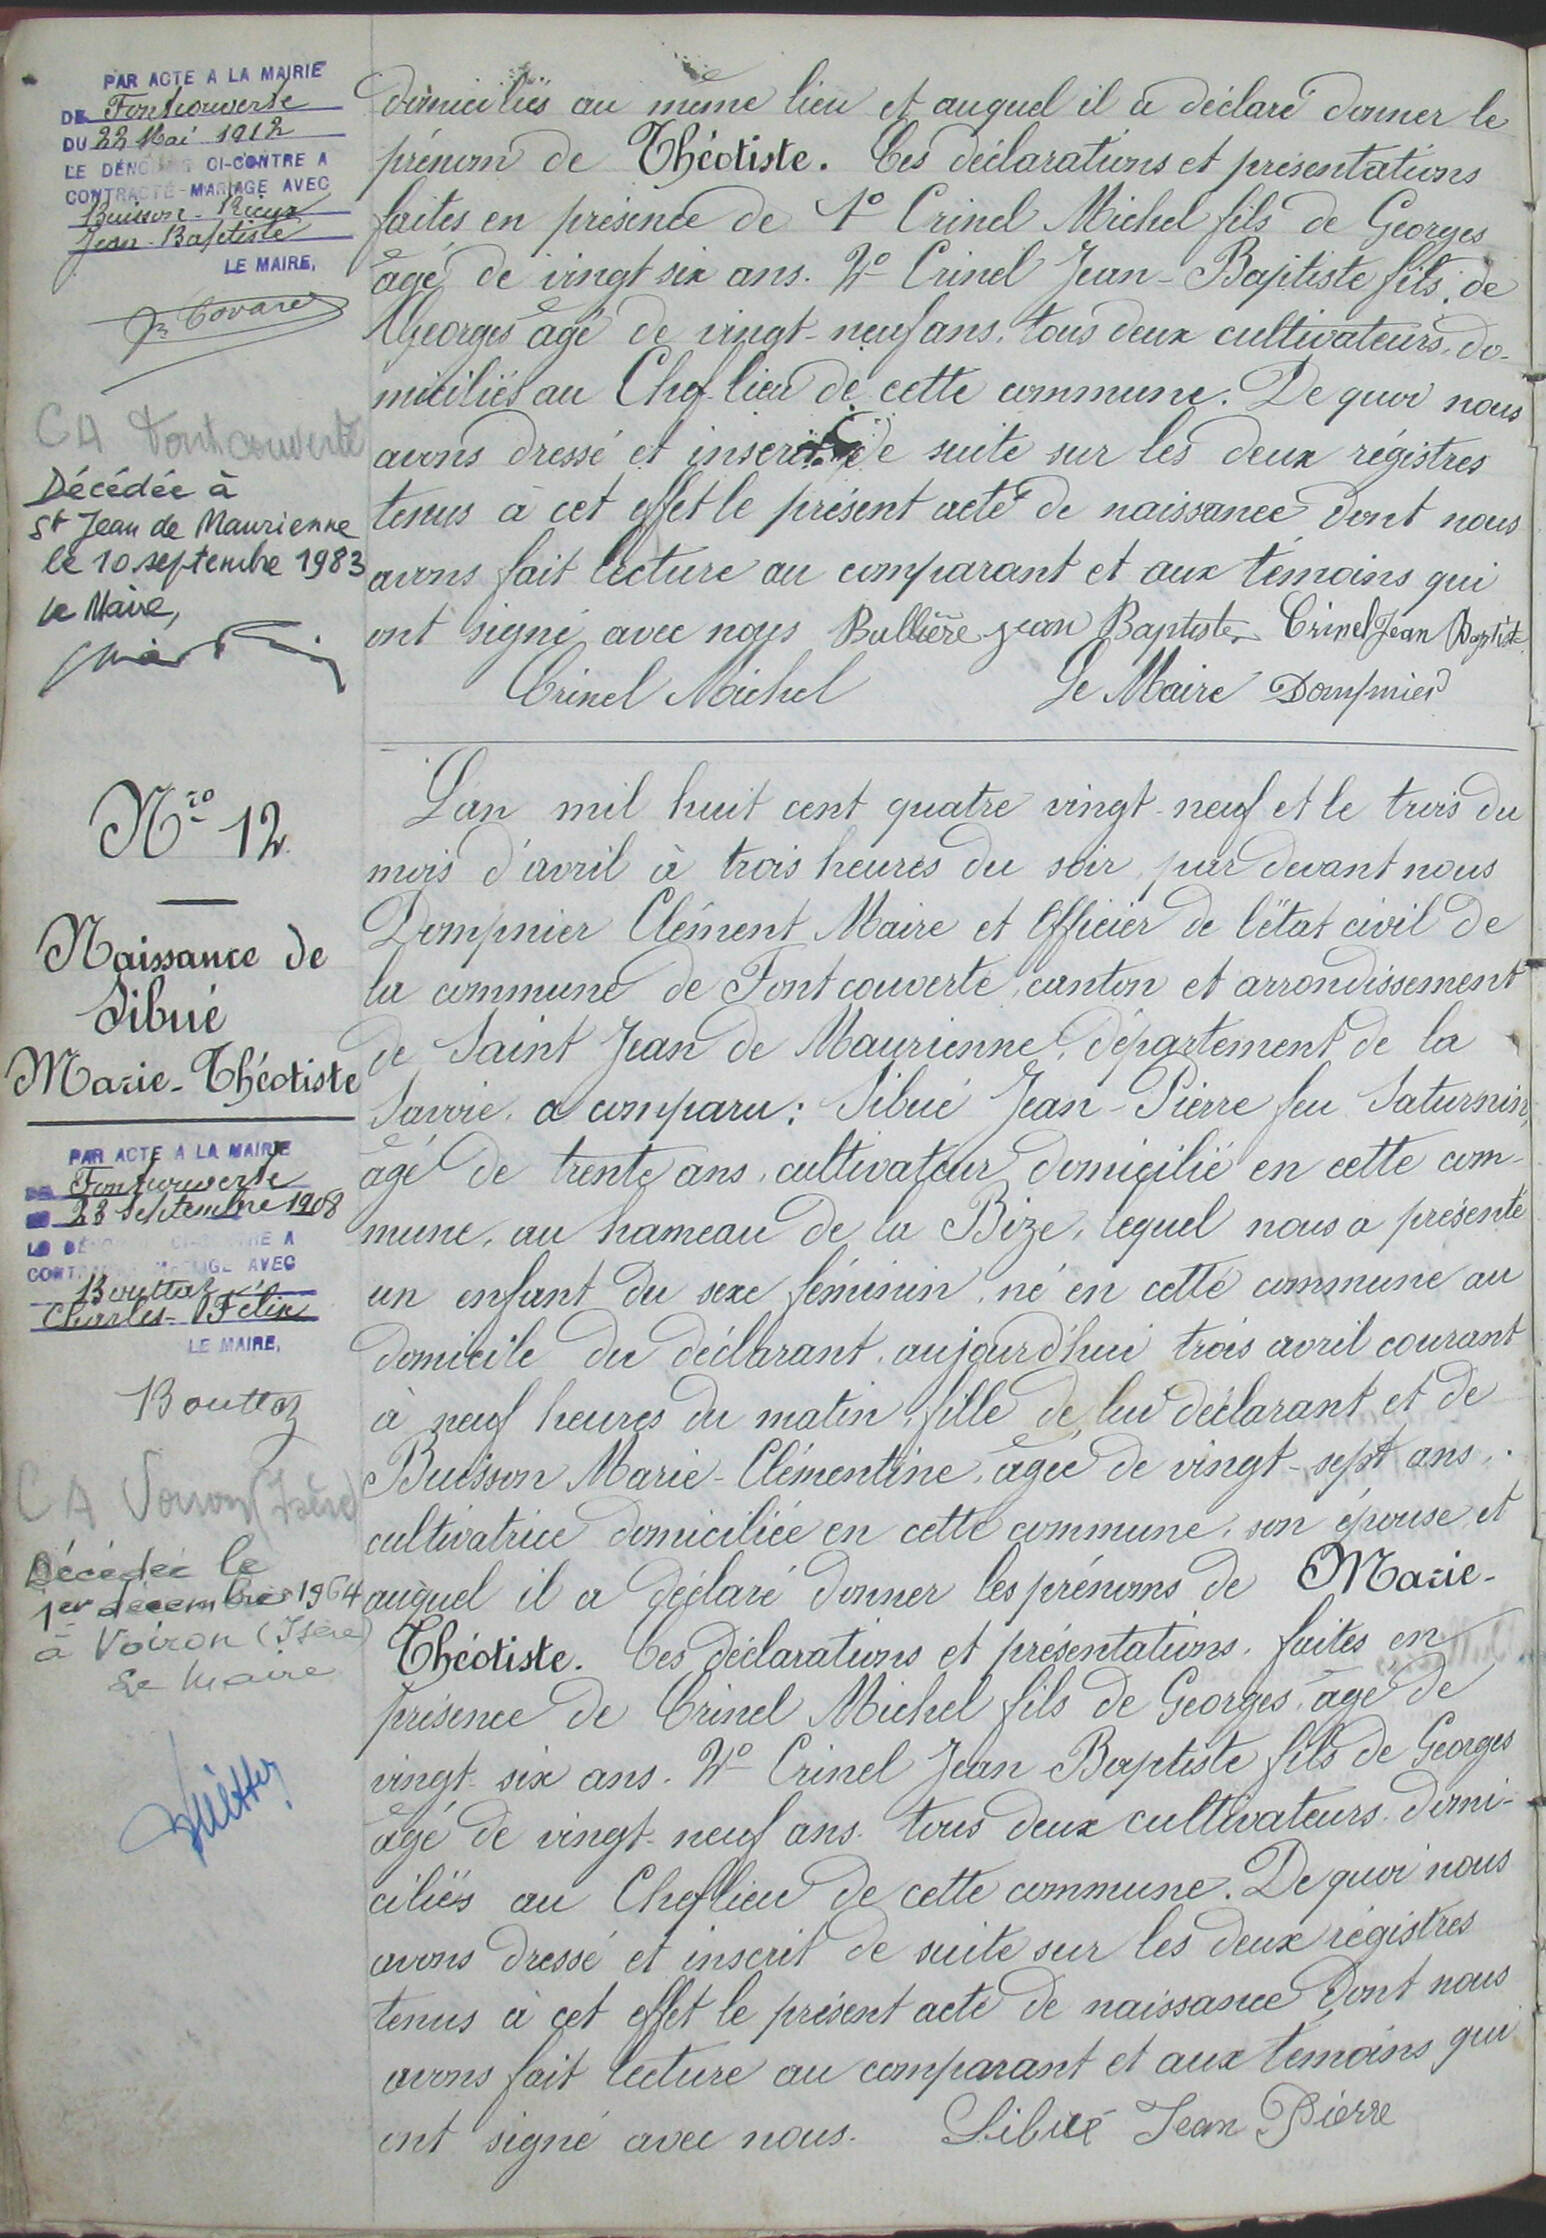 PAR ACTE A LA MAIRIE
DE Fontcouverte
DU 22 Mai 1912
LE DÉNOMMÉ CI-CONTRE A
CONTRACTÉ MARIAGE AVEC
Buisson-Rieux
Jean-Baptiste
LE MAIRE,
CA Fontcouverte
Décédée à
St Jean de Maurienne
le 10 septembre 1983
Le Maire,
domiciliés au même lieu et auquel il a déclaré donner le
prénom de Théotiste. Ces déclarations et présentations
faites en présence de 1º Crinel Michel fils de Georges
âgé de vingt six ans. 2º Crinel Jean-Baptiste fils de
Georges âgé de vingt-neuf ans, tous deux cultivateurs, do-
miciliés au Chef-lieu de cette commune. De quoi nous
avons dressé et inscrit de suite sur les deux régistres
tenus à cet effet le présent acte de naissance dont nous
avons fait lecture au comparant et aux témoins qui
ont signé avec nous Bullière jean Baptiste Crinel Jean Baptiste
Crinel Michel Le Maire Dompnier
Nro 12
Naissance de
Sibué
Marie-Théotiste
PAR ACTE A LA MAIRIE
DE Fontcouverte
DU 23 Septembre 1908
LE DÉNOMMÉ CI-CONTRE A
CONTRACTÉ MARIAGE AVEC
Bouttaz
Charles-Félix
LE MAIRE,
Bouttaz
CA Voiron (Isère)
Décédée le
1er décembre 1964
à Voiron (Isère)
Le Maire
L'an mil huit cent quatre vingt-neuf et le trois du
mois d'avril à trois heures du soir, par devant nous
Dompnier Clément Maire et Officier de l'état civil de
la commune de Fontcouverte, canton et arrondissement
de Saint Jean de Maurienne, département de la
Savoie, a comparu: Sibué Jean-Pierre feu Saturnin,
âgé de trente ans, cultivateur domicilié en cette com-
mune, au hameau de la Bize, lequel nous a présenté
un enfant du sexe féminin, né en cette commune au
domicile du déclarant, aujourd'hui trois avril courant
à neuf heures du matin, fille de lui déclarant et de
Buisson Marie-Clémentine, âgée de vingt-sept ans,
cultivatrice domiciliée en cette commune, son épouse et
auquel il a déclaré donner les prénoms de Marie-
Théotiste. Ces déclarations et présentations, faites en
présence de Crinel Michel fils de Georges, âgé de
vingt-six ans. 2º Crinel Jean Baptiste fils de Georges
âgé de vingt-neuf ans. tous deux cultivateurs domi-
ciliés au Cheflieu de cette commune. De quoi nous
avons dressé et inscrit de suite sur les deux régistres
tenus à cet effet le présent acte de naissance dont nous
avons fait lecture au comparant et aux témoins qui
ont signé avec nous. Sibué Jean Pierre